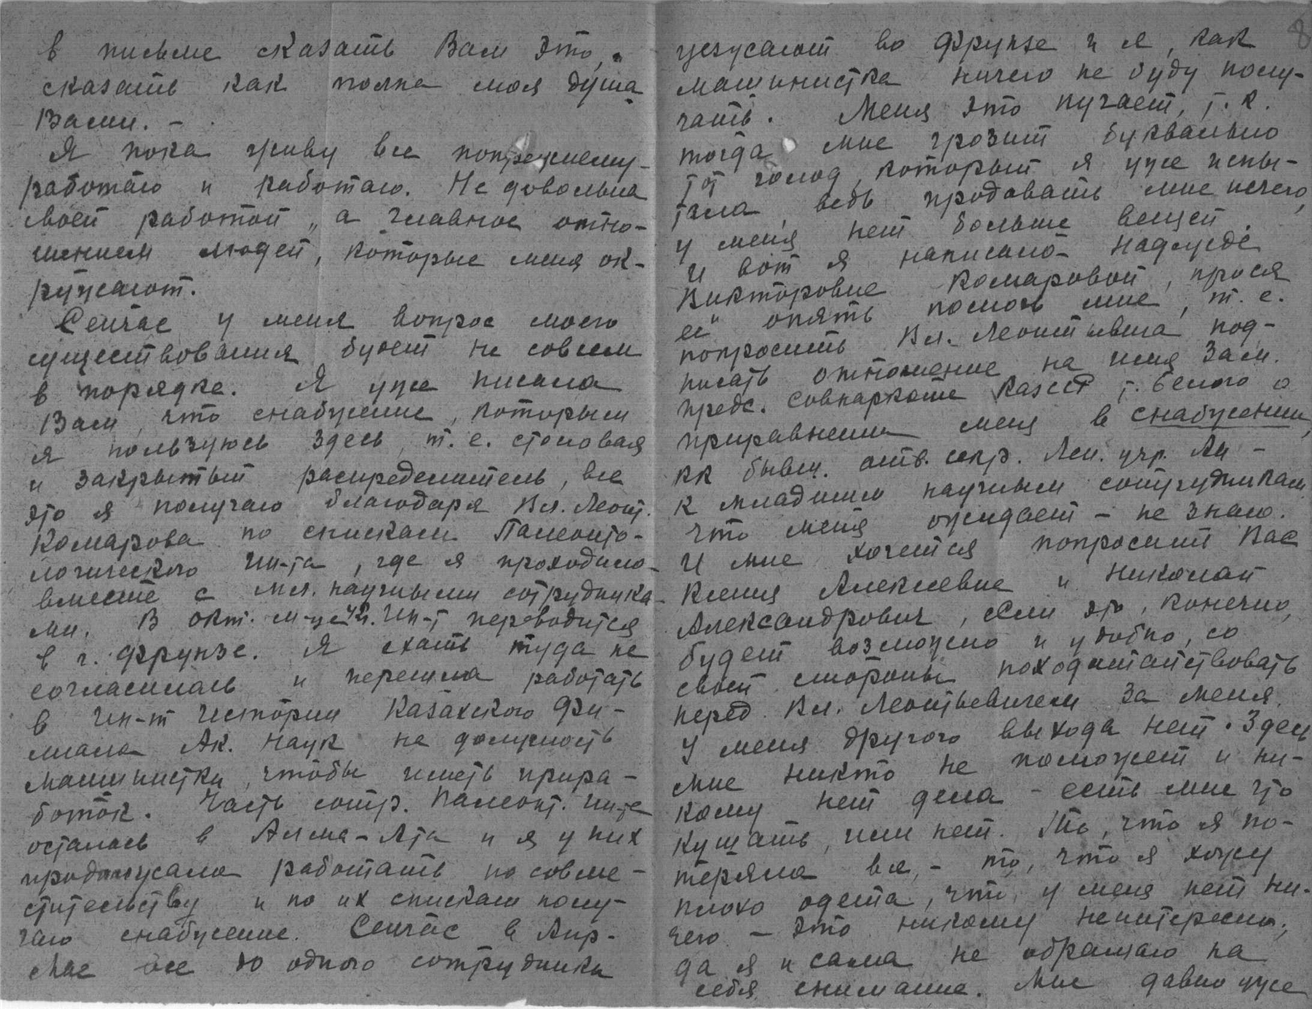 в письме сказать Вам это,
сказать как полна моя душа
Вами. —
Я пока живу все попрежнему-
работаю и работаю. Недовольна
своей работой, а главное отно-
шением людей, которые меня ок-
ружают.
Сейчас у меня вопрос моего
существования будет не совсем
в порядке. Я уже писала
Вам, что снабжение, которым
я пользуюсь здесь, т.е. столовая
и закрытый распределитель, все
это я получаю благодаря Вл. Леонт.
Комарова по спискам Палеонто-
логического Ин-та, где я проходила
вместе с мл. научными сотрудника-
ми. В окт. м-це Ин-т переводится
в г. Фрунзе. Я ехать туда не
согласилась и перешла работать
в Ин-т Истории Казахского Фи-
лиала Ак. Наук на должность
машинистки, чтобы иметь прира-
боток. Часть сотр. Палеонт. Ин-та
осталась в Алма-Ата и я у них
продолжала работать по совме-
стительству и по их спискам полу-
чаю снабжение. Сейчас в
все до одного сотрудники
уезжают во Фрунзе и я, как
машинистка ничего не буду полу-
чать. Меня это пугает, т.к.
тогда мне грозит буквально
тот голод, который я уже испы-
тала, ведь продавать мне нечего,
у меня нет больше вещей.
И вот я написала Надежде
Викторовне Комаровой, прося
ее опять помочь мне, т.е.
попросить Вл. Леонтьевича под-
писать отношение на имя Зам.
предс. Совнаркома КазССР т. Белого о
приравнении меня в снабжении,
кк бывш. отв. секр. Лен. учр. Ан -
к младшим научным сотрудникам
Что меня ожидает - не знаю.
И мне хочется попросить Вас
Ксения Алексеевна и Николай
Александрович, если это, конечно,
будет возможно и удобно, со
своей стороны походатайствовать
перед Вл. Леонтьевичем за меня.
У меня другого выхода нет. Здесь
мне никто не поможет и ни-
кому нет дела - есть мне что
кушать, или нет. То, что я по-
теряла все, - то, что я хожу
плохо одета, что у меня нет ни-
чего - это никому неинтересно,
да я и сама не обращаю на
себя внимание. Мне давно уже